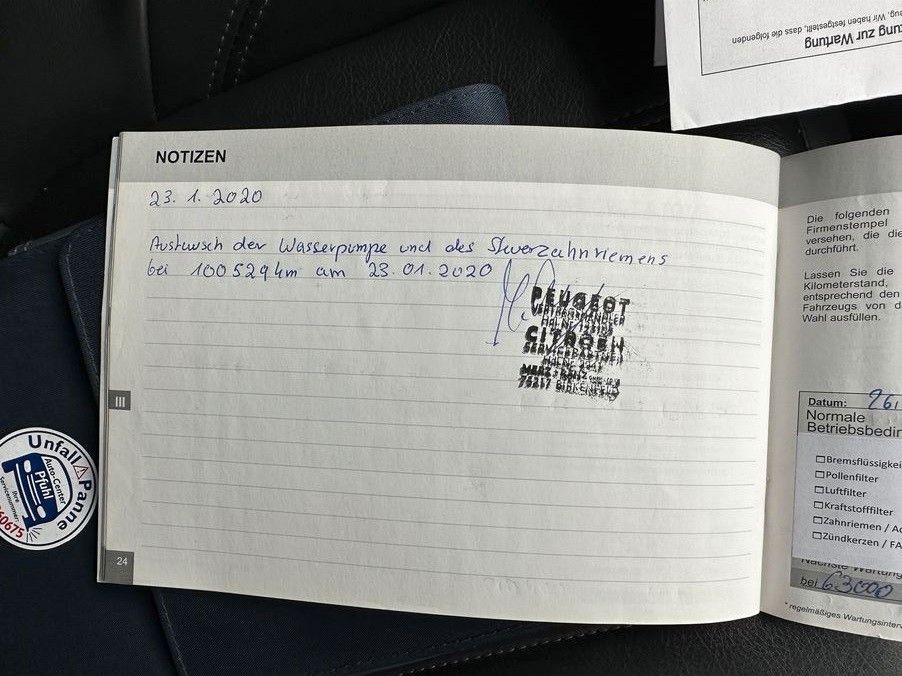 NOTIZEN
23. 1. 2020
Austausch der Wasserpumpe und des Steuerzahnriemens
bei 100529 km am 23.01.2020
PEUGEOT
VERTRAGSHÄNDLER
CITROEN
SERVICEPARTNER
III
24
Unfall Panne
Auto-Center
Pfuhl
Ihre
Servicenummer
60675
tung zur Wartung
zeug. Wir haben festgestellt, dass die folgenden
Die folgenden
Firmenstempel
versehen, die die
durchführt.
Lassen Sie die
Kilometerstand,
entsprechend den
Fahrzeugs von d
Wahl ausfüllen.
Datum: 26/
Normale
Betriebsbedin
☐Bremsflüssigkei
☐Pollenfilter
☐Luftfilter
☐Kraftstofffilter
☐Zahnriemen / Ac
☐Zündkerzen / FA
Nächste Wartung
bei 63000
* regelmäßiges Wartungsinterv